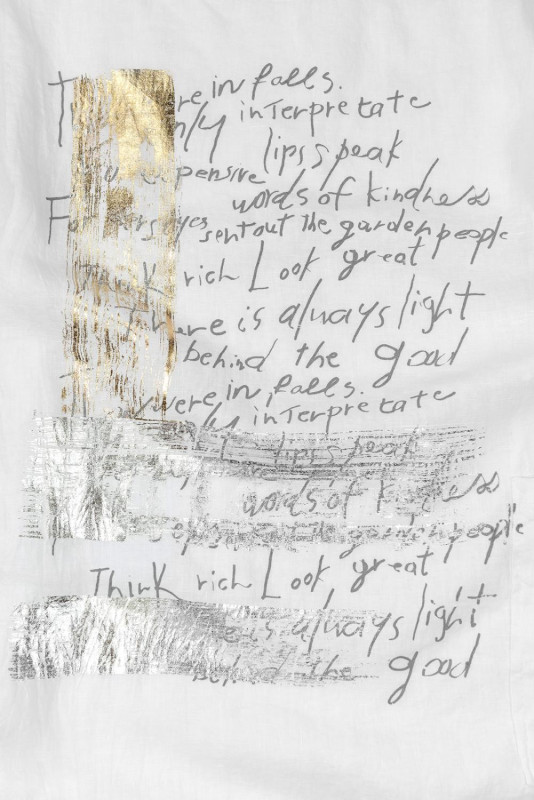 in falls.
interpretate
lips speak
expensive
words of kindness
For eyes sent out the garden people
Think rich Look great
There is always light
behind the good
were in falls.
interpretate
lips speak
words of
the garden people
Think rich Look great
is always light
behind the good